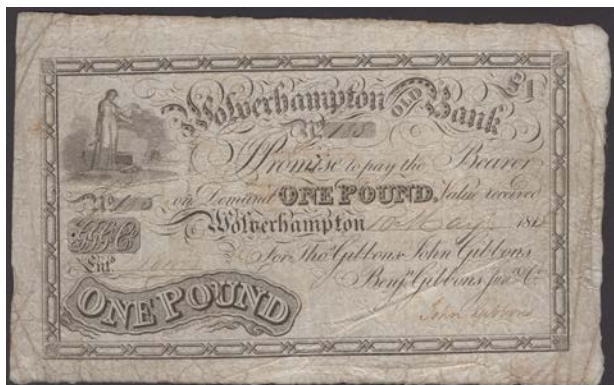 Wolverhampton OLD Bank £1
No
I Promise to pay the Bearer
No on Demand ONE POUND. Value received
Wolverhampton 10 May 181
For Thos. Gibbons John Gibbons
Entd. Benjn. Gibbons junr. & Co.
ONE POUND
John Gibbons